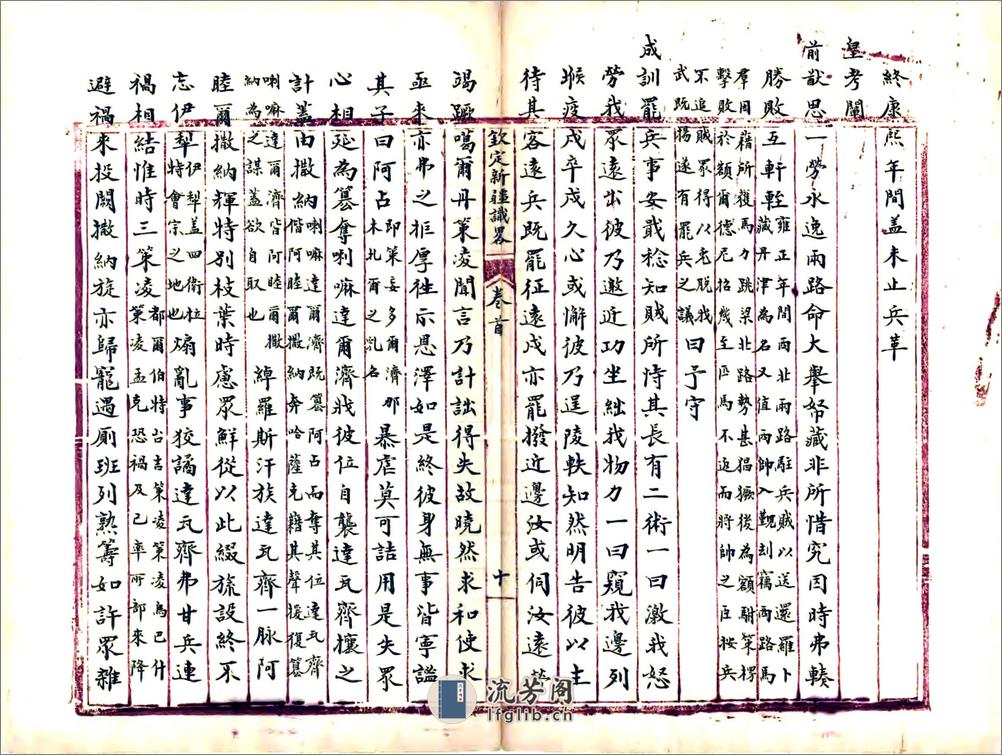 終康熙年間蓋未止兵革
皇考闡
前猷思一勞永逸兩路命大舉帑藏非所惜究因時弗輳
勝敗互軒輊雍正年間西北兩路駐兵賊以送還羅卜
藏丹津為名又值兩帥入覲刦竊西路馬
羣因藉所獲馬力跳梁北路勢甚猖獗後為額駙策楞
擊敗於額爾德尼招幾至匹馬不返而將帥之臣按兵
不追賊眾得以兔脫我
武既揚遂有罷兵之議曰予守
成訓罷兵事安戢稔知賊所恃其長有二術一曰激我怒
勞我眾遠出彼乃邀近功坐絀我物力一曰窺我邊列
堠疲戍卒戍久心或懈彼乃逞陵軼知然明告彼以主
待其客遠兵既罷征遠戍亦罷撥近邊汝或伺汝遠
欽定新疆識畧
卷首
十
竭蹶噶爾丹策凌聞言乃計詘得失故曉然求和使求
亟來亦弗之拒厚往示恩澤如是終彼身無事皆寧謐
其子曰阿占即策妄多爾濟那
木札爾之乳名暴虐莫可詰用是失眾
心相延為篡奪喇嘛達爾濟戕彼位自襲達瓦齊攘之
計蓋由撒納喇嘛達爾濟既篡阿占而奪其位達瓦齊
偕阿睦爾撒納奔哈薩克藉其聲援復篡
喇嘛達爾濟皆阿睦爾撒
納為之謀蓋欲自取也綽羅斯汗族達瓦齊一脈阿
睦爾撒納輝特別枝葉時慮眾鮮從以此綴旒設終不
忘伊犁伊犁蓋四衛拉
特會宗之地也煽亂事狡譎達瓦齊弗甘兵連
禍相結惟時三策凌都爾伯特台吉策凌策凌烏巴什
策凌孟克恐禍及己率所部來降
避禍來投闕撒納旋亦歸寵遇廁班列熟籌如許眾雜
流芳阁
lfglib.cn